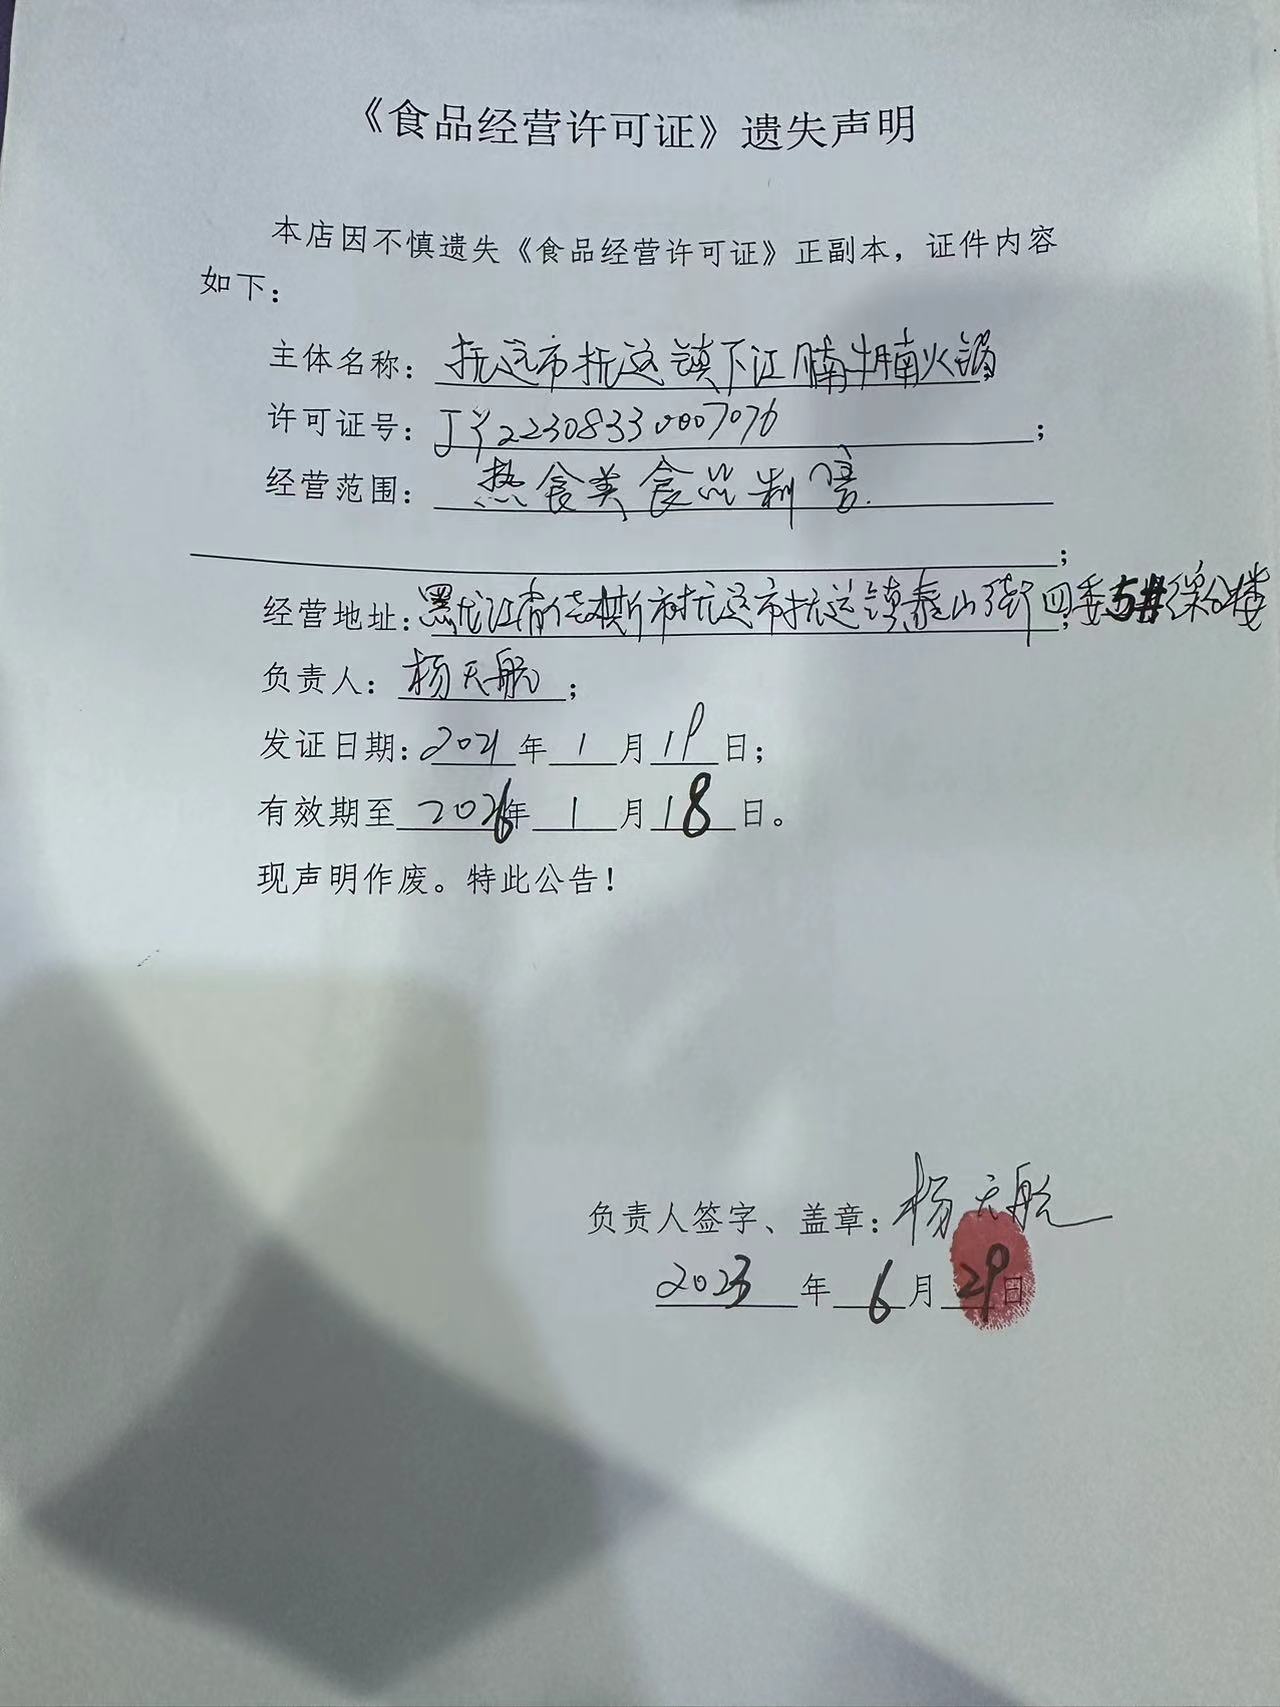 《食品经营许可证》遗失声明
本店因不慎遗失《食品经营许可证》正副本，证件内容
如下：
主体名称：抚远市抚远镇下江腩牛腩火锅
许可证号：JY22308330007076；
经营范围：热食类食品制售.
；
经营地址：黑龙江省佳木斯市抚远市抚远镇泰山街四委5#综合楼；
负责人：杨天航；
发证日期：2021年1月19日；
有效期至2026年1月18日。
现声明作废。特此公告！
负责人签字、盖章：杨天航
2023年6月29日